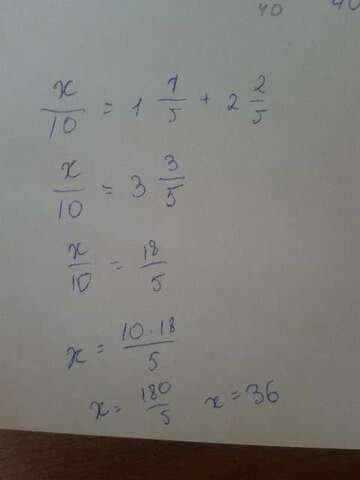 40 40
x/10 = 1 1/5 + 2 2/5
x/10 = 3 3/5
x/10 = 18/5
x = 10·18/5
x = 180/5 x = 36